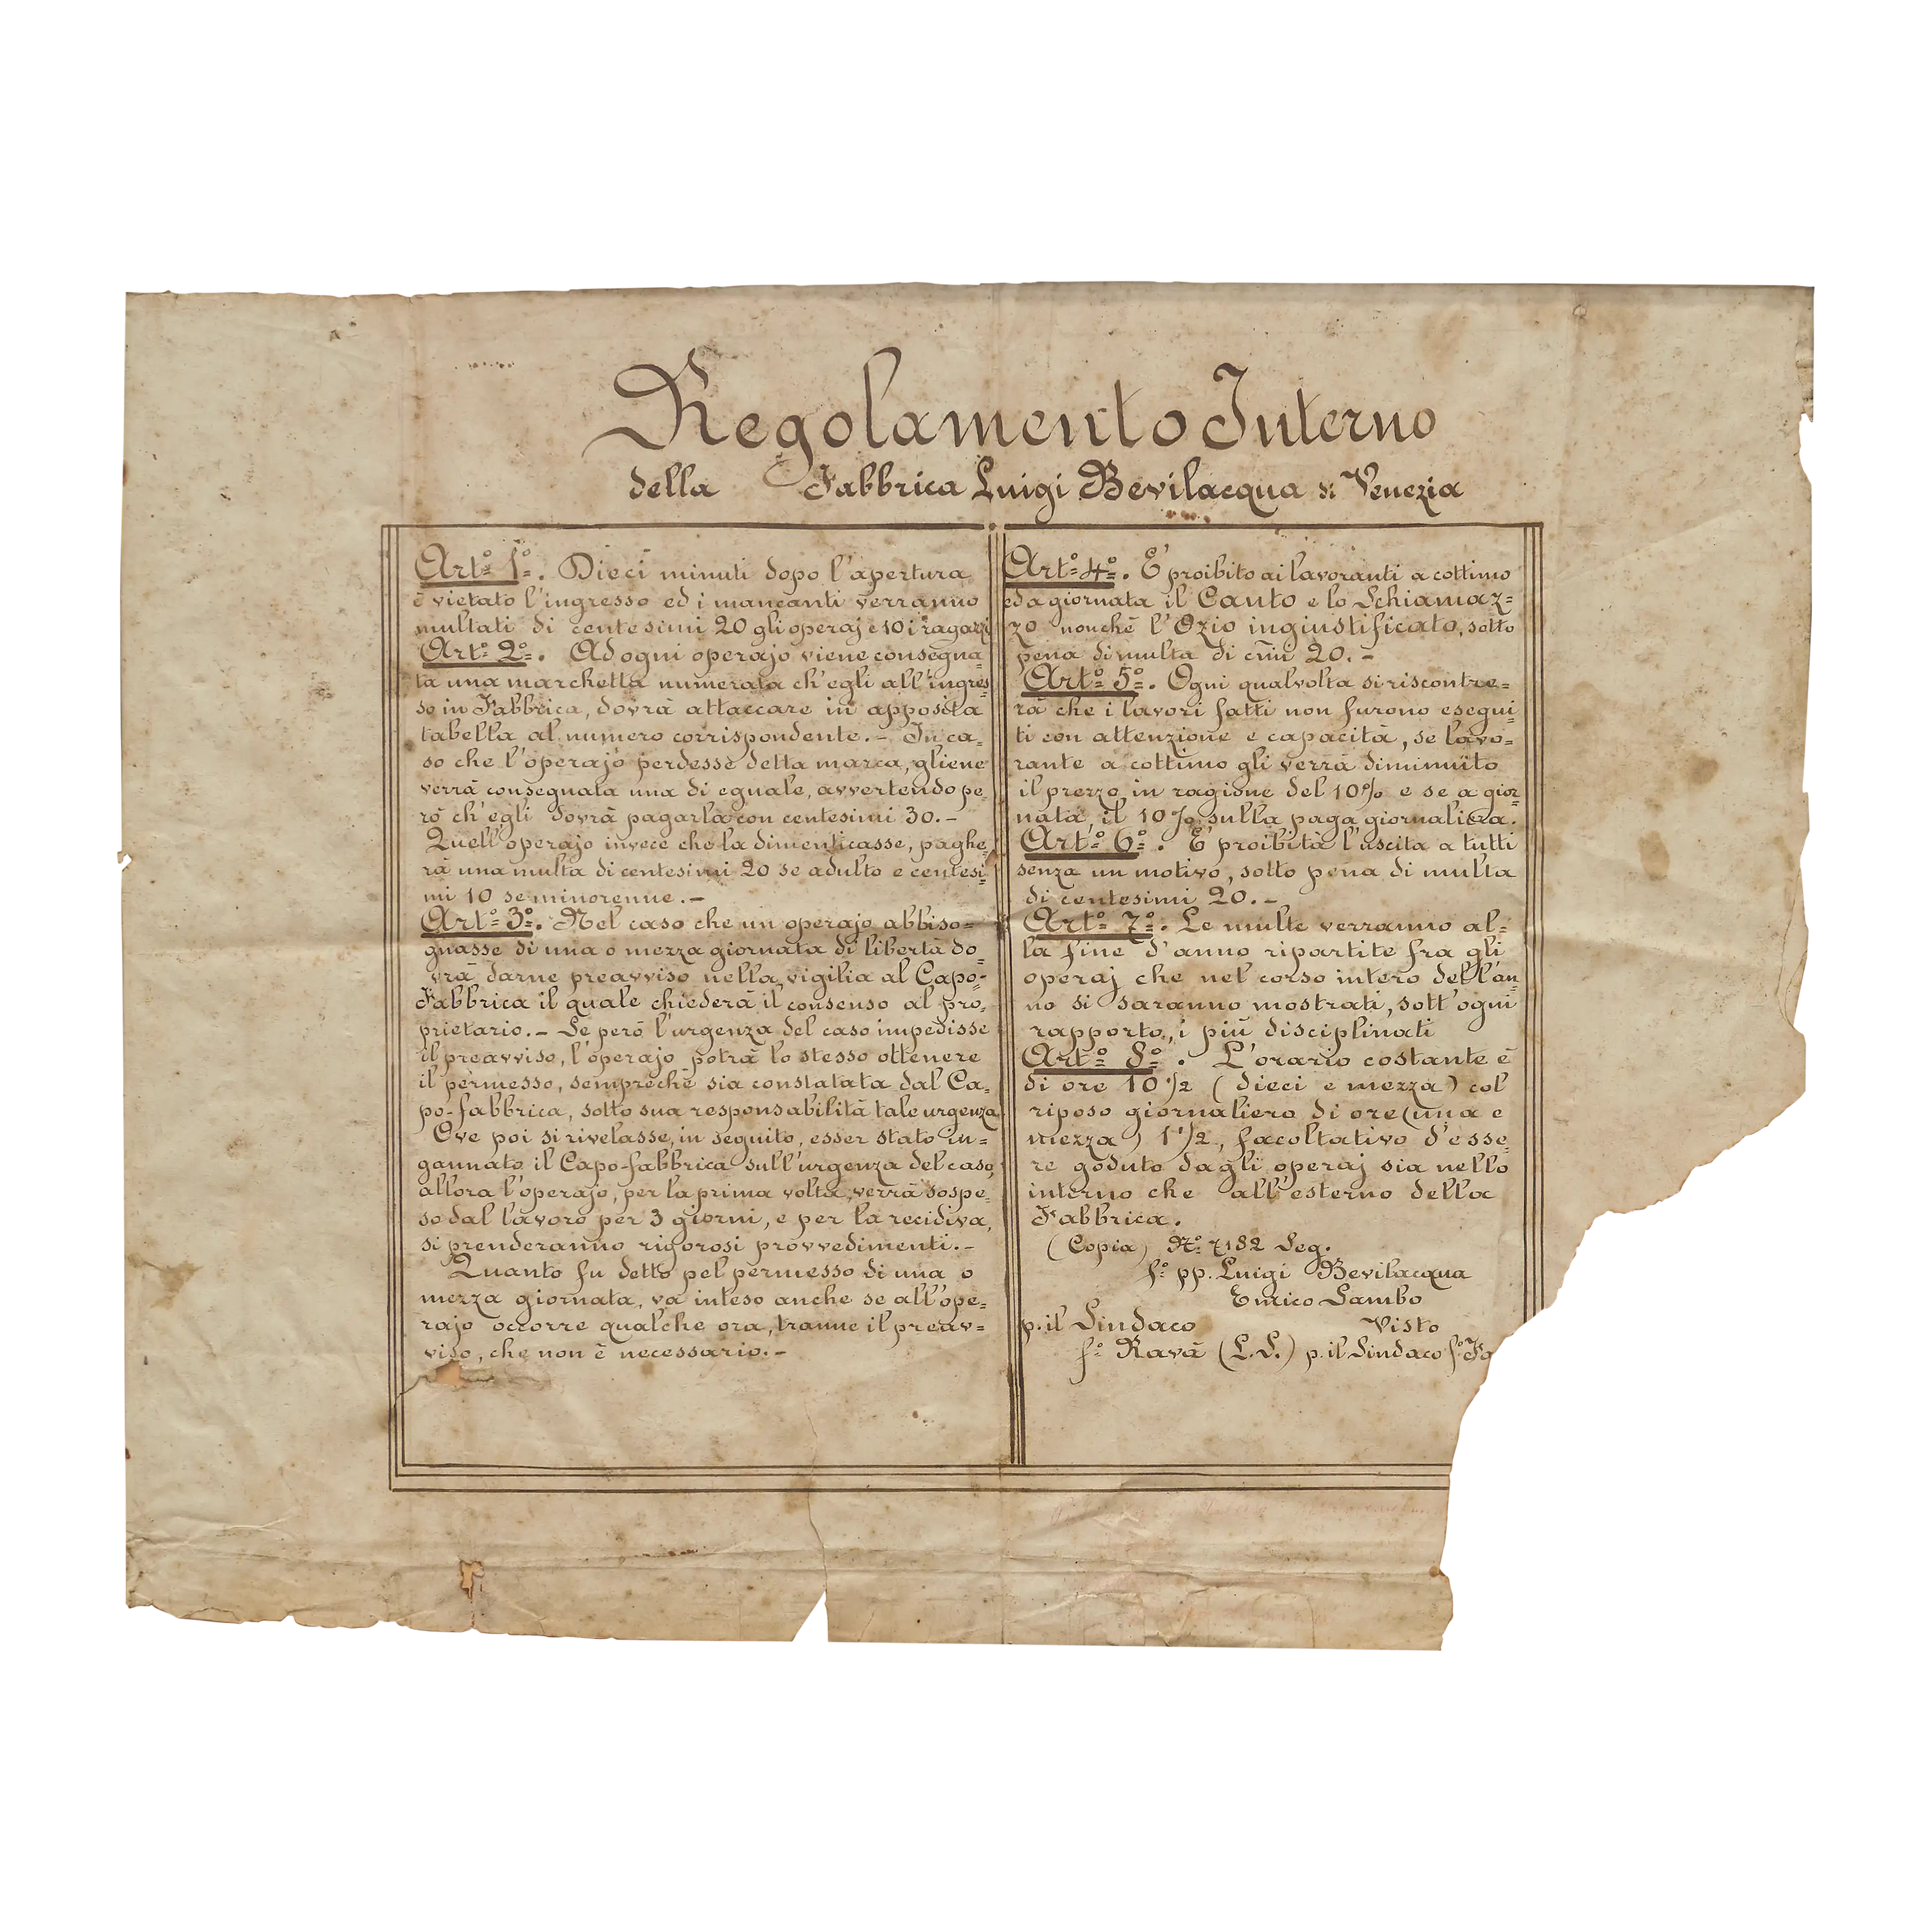 Regolamento Interno
della Fabbrica Luigi Bevilacqua di Venezia
Art.º 1º. Dieci minuti dopo l'apertura
è vietato l'ingresso ed i mancanti verranno
multati di centesimi 20 gli operaj e 10 i ragazzi
Art.º 2º. Ad ogni operajo viene consegna=
ta una marchetta numerata ch'egli all'ingres=
so in Fabbrica, dovrà attaccare in apposita
tabella al numero corrispondente.- In ca=
so che l'operajo perdesse detta marca, gliene
verrà consegnata una di eguale, avvertendo pe=
rò ch'egli dovrà pagarla con centesimi 30.-
Quell'operajo invece che la dimenticasse, paghe=
rà una multa di centesimi 20 se adulto e centesi=
mi 10 se minorenne.-
Art.º 3º. Nel caso che un operajo abbiso=
gnasse di una o mezza giornata di libertà do=
vrà darne preavviso nella vigilia al Capo=
Fabbrica il quale chiederà il consenso al pro=
prietario.- Se però l'urgenza del caso impedisse
il preavviso, l'operajo potrà lo stesso ottenere
il permesso, sempreché sia constatata dal Ca=
po-fabbrica, sotto sua responsabilità tale urgenza
Ove poi si rivelasse, in seguito, esser stato in=
gannato il Capo-fabbrica sull'urgenza del caso,
allora l'operajo, per la prima volta, verrà sospe=
so dal lavoro per 3 giorni, e per la recidiva,
si prenderanno rigorosi provvedimenti.-
Quanto fu detto pel permesso di una o
mezza giornata, va inteso anche se all'ope=
rajo occorre qualche ora, tranne il preav=
viso, che non è necessario.-
Art.º 4º. È proibito ai lavoranti a cottimo
ed a giornata il Canto e lo Schiamaz=
zo nonché l'Ozio ingiustificato, sotto
pena di multa di cmi 20.-
Art.º 5º. Ogni qualvolta si riscontre=
rà che i lavori fatti non furono esegui=
ti con attenzione e capacità, se lavo=
rante a cottimo gli verrà diminuito
il prezzo in ragione del 10% e se a gior=
nata, il 10% sulla paga giornaliera.
Art.º 6º. È proibita l'uscita a tutti
senza un motivo, sotto pena di multa
di centesimi 20.-
Art.º 7º. Le multe verranno al=
la fine d'anno ripartite fra gli
operaj che nel corso intero dell'an=
no si saranno mostrati, sott'ogni
rapporto, i più disciplinati
Art.º 8º. L'orario costante è
di ore 10 1/2 (dieci e mezza) col
riposo giornaliero di ore (una e
mezza) 1 1/2, facoltativo d'esse=
re goduto dagli operaj sia nello
interno che all'esterno della
Fabbrica.
(Copia) Nº 7182 Seg.
fº pp. Luigi Bevilacqua
Enrico Sambo
p. il Sindaco Visto
fº Ravà (L.S.) p. il Sindaco fº